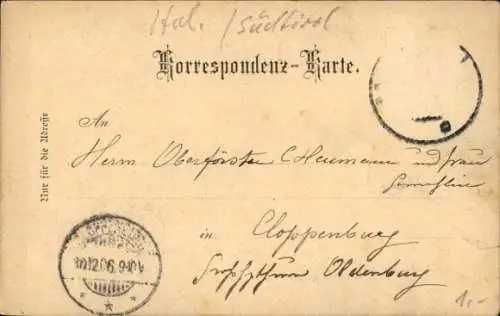 Ital. / Südtirol
Korrespondenz-Karte.
Nur für die Adresse
An
Herrn Oberförster Heumann und Frau
Gemahlin
in Cloppenburg
Großhztum Oldenburg
1.-